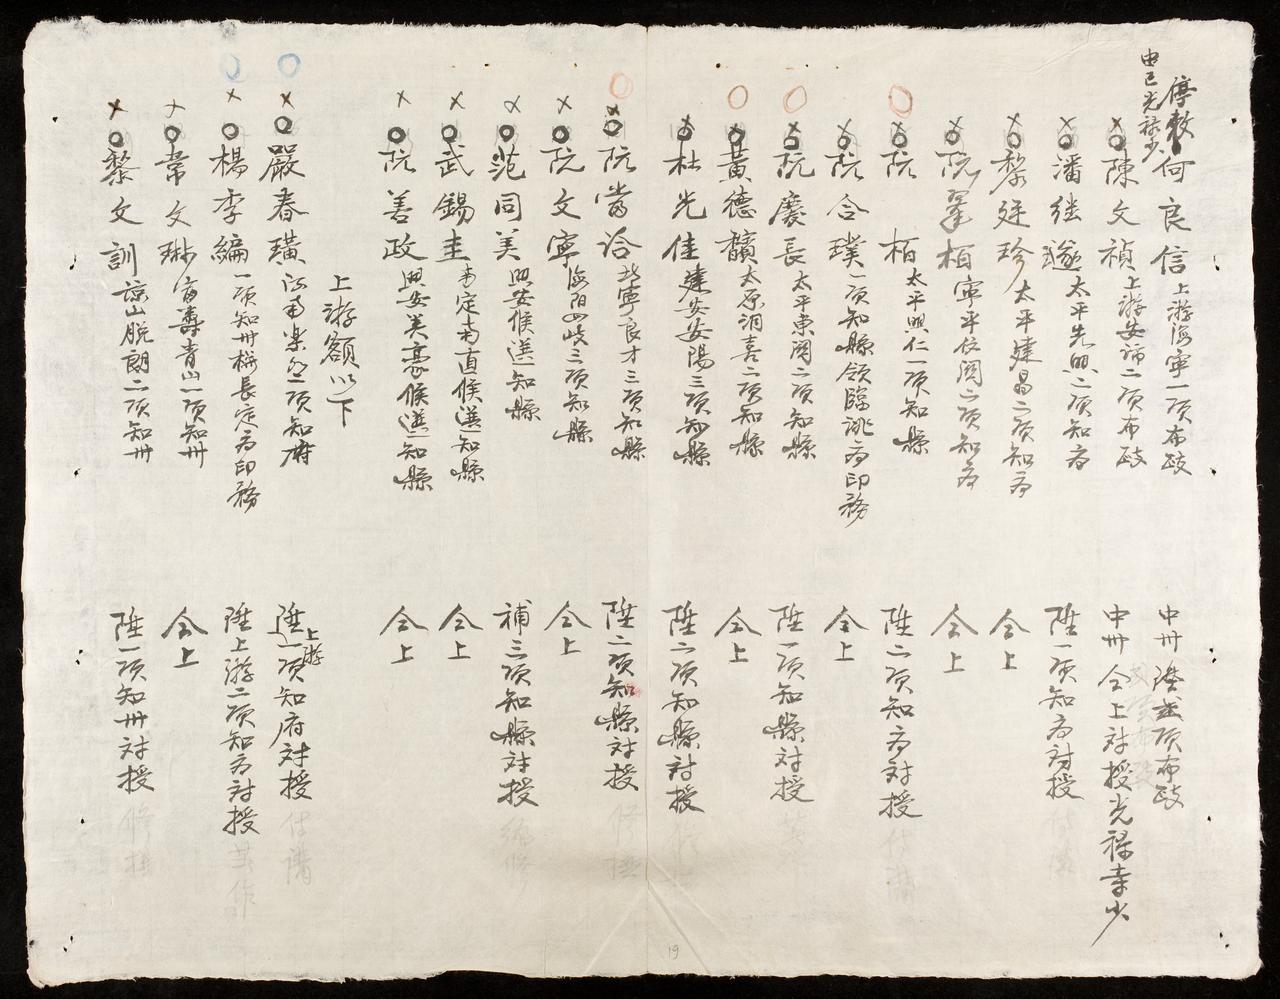 停敕 何良信 上游海寧一項布政 中卅陞弍項布政
由已光祿少
陳文禎 上游安沛二項布政 中卅仝上対授光祿寺少
潘継邃 太平先興二項知府 陞一項知府対授
黎廷珍 太平建昌二項知府 仝上
阮翠栢 寧平位闊二項知府 仝上
阮栢 太平興仁一項知縣 陞二項知府対授
阮合璞 一項知縣領臨洮府印務 仝上
阮慶長 太平東關二項知縣 陞一項知縣対授
黃德 太原洞喜二項知縣 仝上
杜光佳 建安安陽三項知縣 陞二項知縣対授
阮當洽 北寧良才三項知縣 陞二項知縣対授
阮文寧 海陽四岐三項知縣 仝上
范同美 興安候選知縣 補三項知縣対授
武錫圭 南定南直候選知縣 仝上
阮善政 興安美豪候選知縣 仝上
上游額以下
嚴春璜 一項知府 陞上游一項知府対授
楊季編 一項知州権長定府印務 陞上游二項知府対授
常文琳 富壽青山一項知州 仝上
黎文訓 諒山脫朗二項知州 陞一項知州対授
19